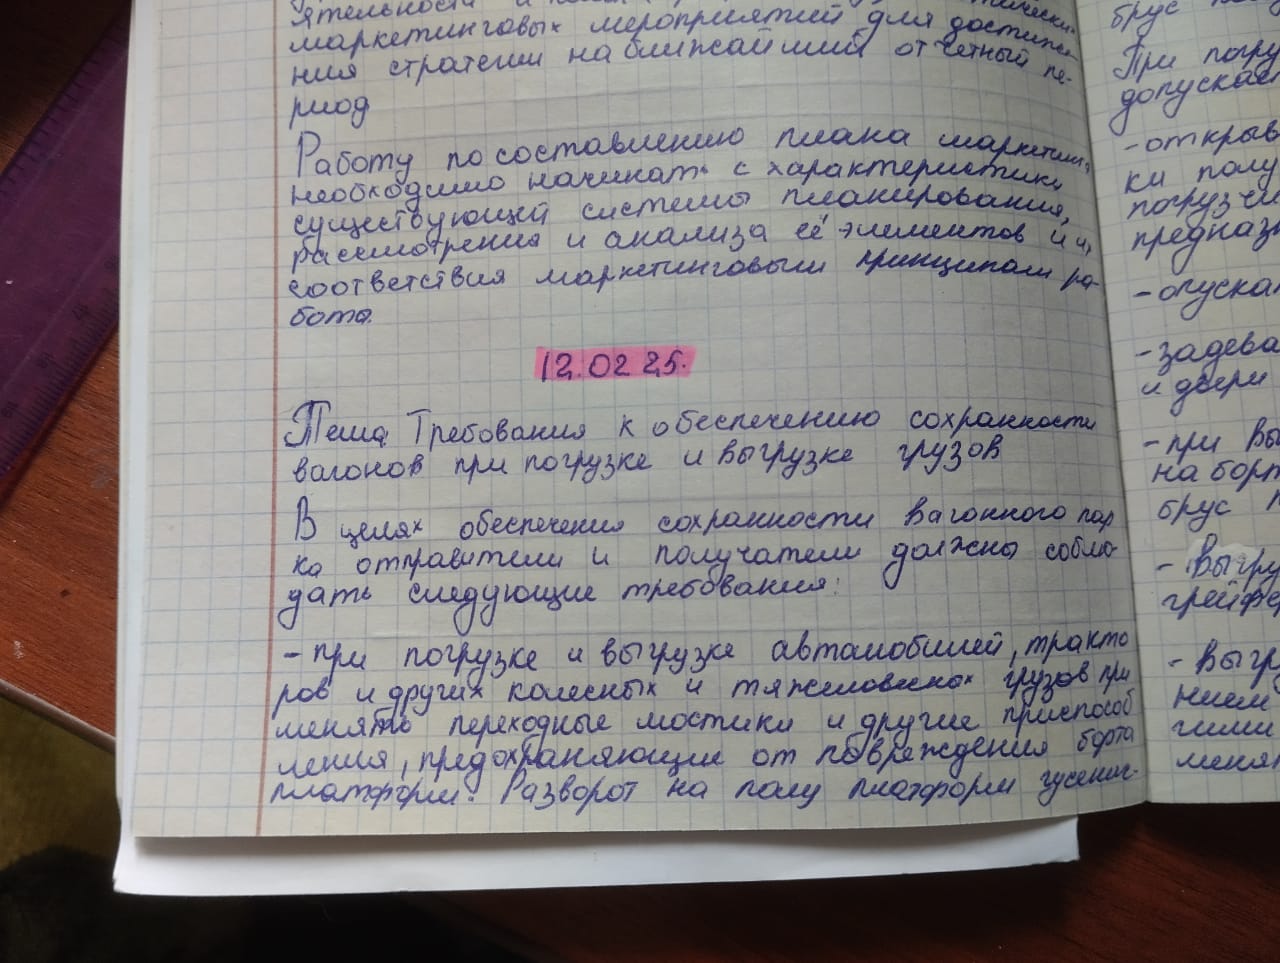 маркетинговых мероприятий для достиже-
ния стратегии на ближайший отчётный пе-
риод
Работу по составлению плана маркетинга
необходимо начинать с характеристики
существующей системы планирования,
рассмотрения и анализа её элементов и их
соответствия маркетинговым принципам ра-
боты.
12.02 25.
Тема. Требования к обеспечению сохранности
вагонов при погрузке и выгрузке грузов
В целях обеспечения сохранности вагонного пар
ка отправители и получатели должны соблю-
дать следующие требования:
- при погрузке и выгрузке автомобилей, тракто
ров и других колесных и тяжеловесных грузов при
менять переходные мостики и другие приспособ
ления, предохраняющие от повреждения борта
платформ. Разворот на полу платформ гусенич-
брус
При погру
допускает
- открыв
ки полу
погрузчи
предназн
- опускат
- задева
и двери
- при Вы
на борт
брус
- Выгру
грейфе
- Выгр
нием
гими
менят